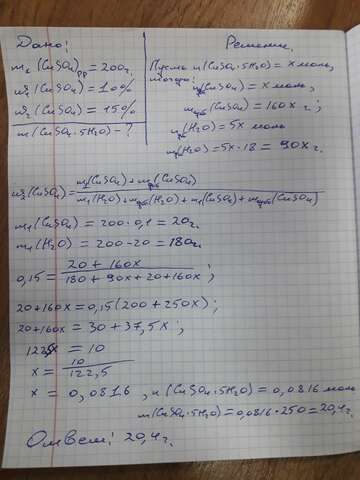 Дано:
m₁(CuSO₄)рр = 200г.
ω₁(CuSO₄) = 10%
ω₂(CuSO₄) = 15%
m(CuSO₄·5H₂O) - ?
Решение.
Пусть n(CuSO₄·5H₂O) = x моль,
тогда:
nдоб(CuSO₄) = x моль,
mдоб(CuSO₄) = 160x г;
nдоб(H₂O) = 5x моль
mдоб(H₂O) = 5x·18 = 90x г.
ω₂(CuSO₄) = (m₁(CuSO₄) + mдоб(CuSO₄)) / (m₁(H₂O) + mдоб(H₂O) + m₁(CuSO₄) + mдоб(CuSO₄))
m₁(CuSO₄) = 200·0,1 = 20г.
m₁(H₂O) = 200-20 = 180г.
0,15 = (20 + 160x) / (180 + 90x + 20 + 160x) ;
20+160x = 0,15(200 + 250x);
20+160x = 30 + 37,5x ;
122,5x = 10
x = 10 / 122,5
x = 0,0816 , n(CuSO₄·5H₂O) = 0,0816 моль
m(CuSO₄·5H₂O) = 0,0816·250 = 20,4г.
Ответ: 20,4г.